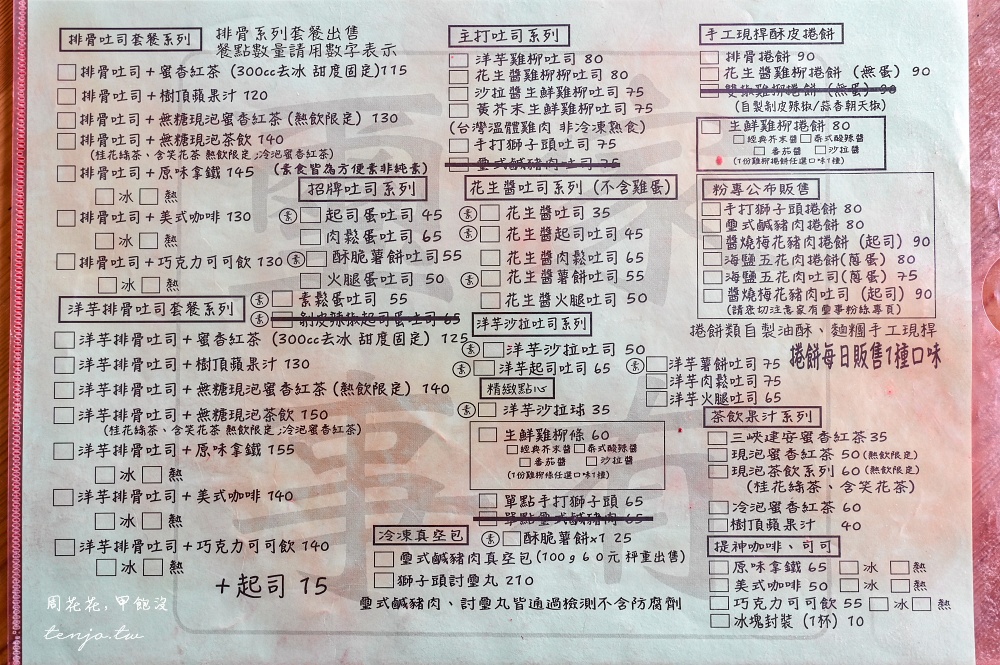 排骨吐司套餐系列
排骨系列套餐出售
餐點數量請用數字表示
排骨吐司+蜜香紅茶 (300cc去冰 甜度固定)115
排骨吐司+樹頂蘋果汁 120
排骨吐司+無糖現泡蜜香紅茶 (熱飲限定) 130
排骨吐司+無糖現泡茶飲 140
(桂花綠茶、含笑花茶 熱飲限定;冷泡蜜香紅茶)
排骨吐司+原味拿鐵 145 (素食皆為方便素非純素)
冰 熱
排骨吐司+美式咖啡 130
冰 熱
排骨吐司+巧克力可可飲 130
冰 熱
招牌吐司系列
素 起司蛋吐司 45
肉鬆蛋吐司 65
素 酥脆薯餅吐司 55
火腿蛋吐司 50
素 素鬆蛋吐司 55
素 剝皮辣椒起司蛋吐司 65
洋芋排骨吐司套餐系列
洋芋排骨吐司+蜜香紅茶 (300cc去冰 甜度固定) 125
洋芋排骨吐司+樹頂蘋果汁 130
洋芋排骨吐司+無糖現泡蜜香紅茶 (熱飲限定) 140
洋芋排骨吐司+無糖現泡茶飲 150
(桂花綠茶、含笑花茶 熱飲限定;冷泡蜜香紅茶)
洋芋排骨吐司+原味拿鐵 155
冰 熱
洋芋排骨吐司+美式咖啡 140
冰 熱
洋芋排骨吐司+巧克力可可飲 140
冰 熱
+起司 15
主打吐司系列
洋芋雞柳吐司 80
花生醬雞柳柳吐司 80
沙拉醬生鮮雞柳吐司 75
黃芥末生鮮雞柳吐司 75
(台灣溫體雞肉 非冷凍熟食)
手打獅子頭吐司 75
璽式鹹豬肉吐司 75
花生醬吐司系列 (不含雞蛋)
素 花生醬吐司 35
素 花生醬起司吐司 45
花生醬肉鬆吐司 65
素 花生醬薯餅吐司 55
花生醬火腿吐司 50
洋芋沙拉吐司系列
素 洋芋沙拉吐司 50
素 洋芋起司吐司 65
素 洋芋薯餅吐司 75
洋芋肉鬆吐司 75
洋芋火腿吐司 65
精緻點心
素 洋芋沙拉球 35
生鮮雞柳條 60
經典芥末醬 泰式酸辣醬
番茄醬 沙拉醬
(1份雞柳條任選口味1種)
單點手打獅子頭 65
單點璽式鹹豬肉 65
素 酥脆薯餅x1 25
冷凍真空包
璽式鹹豬肉真空包(100g60元 秤重出售)
獅子頭討璽丸 210
璽式鹹豬肉、討璽丸皆通過檢測不含防腐劑
手工現桿酥皮捲餅
排骨捲餅 90
花生醬雞柳捲餅 (無蛋) 90
雙椒雞柳捲餅 (無蛋) 90
(自製剝皮辣椒/蒜香朝天椒)
生鮮雞柳捲餅 80
經典芥末醬 泰式酸辣醬
番茄醬 沙拉醬
(1份雞柳捲餅任選口味1種)
粉專公布販售
手打獅子頭捲餅 80
璽式鹹豬肉捲餅 80
醬燒梅花豬肉捲餅 (起司) 90
海鹽五花肉捲餅(蔥蛋) 80
海鹽五花肉吐司(蔥蛋) 75
醬燒梅花豬肉吐司 (起司) 90
(請密切注意家有璽事粉絲專頁)
捲餅類自製油酥、麵糰手工現桿
捲餅每日販售1種口味
茶飲果汁系列
三峽建安蜜香紅茶35
現泡蜜香紅茶 50(熱飲限定)
現泡茶飲系列 60(熱飲限定)
(桂花綠茶、含笑花茶)
冷泡蜜香紅茶 60
樹頂蘋果汁 40
提神咖啡、可可
原味拿鐵 65 冰 熱
美式咖啡 50 冰 熱
巧克力可可飲 55 冰 熱
冰塊封裝 (1杯) 10
家有
璽事
周花花,甲飽沒
tenjo.tw